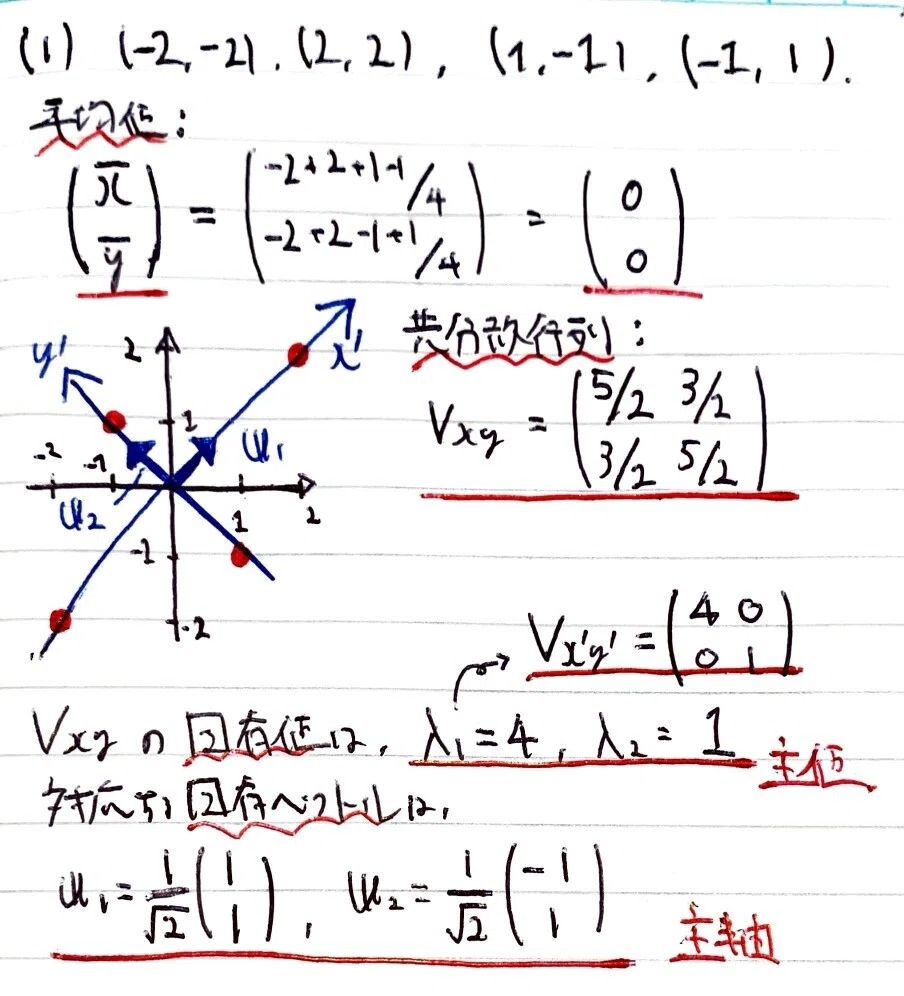 (1) (-2,-2), (2,2), (1,-1), (-1,1).
平均値:
(x̄ ȳ) = (-2+2+1-1/4 -2+2-1+1/4) = (0 0)
共分散行列:
Vxy = (5/2 3/2 3/2 5/2)
y' 2 x'
1 u₁
-2 -1
u₂ 1 2
-1
-2
Vx'y' = (4 0 0 1)
Vxyの固有値は, λ₁=4, λ₂=1 主値
対応する固有ベクトルは,
u₁=1/√2(1 1), u₂=1/√2(-1 1) 主軸